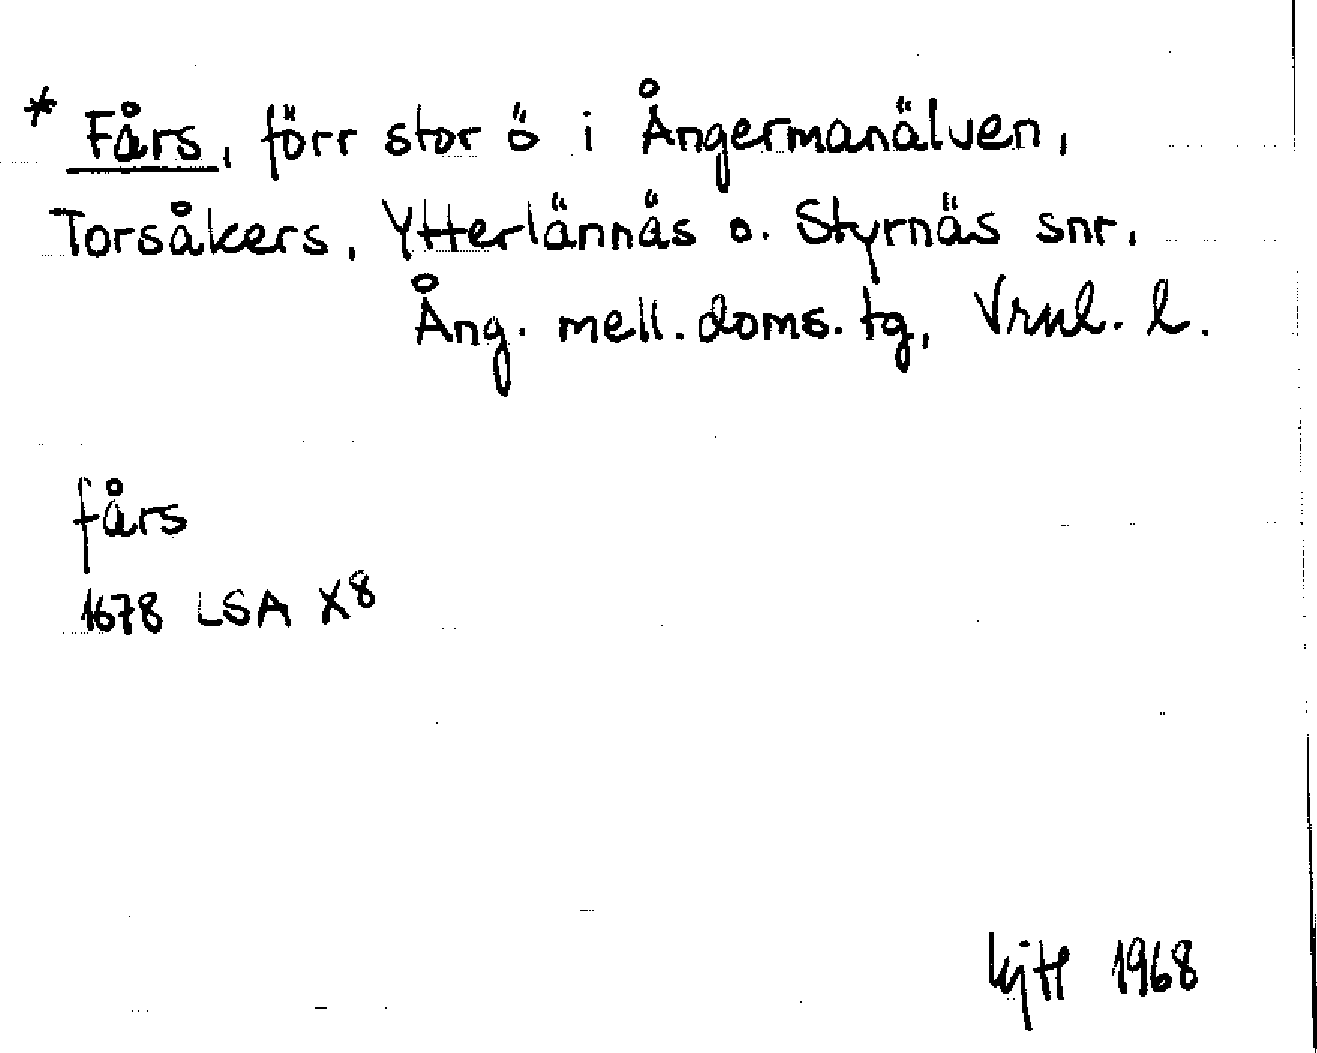 * Fårs, förr stor ö i Ångermanälven,
Torsåkers, Ytterlännäs o. Styrnäs snr,
Ång. mell. doms. tg, Vrnl. l.
fårs
1678 LSA X8
1968